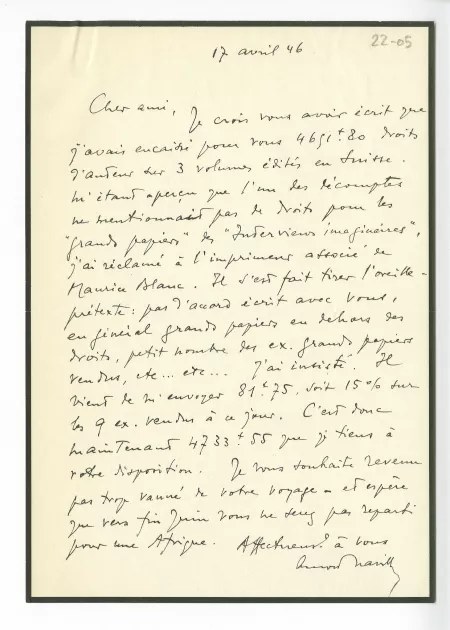 22-05
17 avril 46
Cher ami, Je crois vous avoir écrit que
j'avais encaissé pour vous 4651 f 80 droits
d'auteur sur 3 volumes édités en Suisse.
M'étant aperçu que l'un des décomptes
ne mentionnait pas de droits pour les
"grands papiers" des "Interviews imaginaires",
j'ai réclamé à l'imprimeur associé de
Maurice Blanc. Il s'est fait tirer l'oreille -
prétexte : pas d'accord écrit avec vous,
en général grands papiers en dehors des
droits, petit nombre des ex. grands papiers
vendus, etc... etc... J'ai insisté. Il
vient de m'envoyer 81 f 75, soit 15% sur
les 9 ex. vendus à ce jour. C'est donc
maintenant 4733 f 55 que je tiens à
votre disposition. Je vous souhaite revenu
pas trop vanné de votre voyage - et espère
que vers fin Juin vous ne serez pas reparti
pour une Afrique. Affectueust à vous